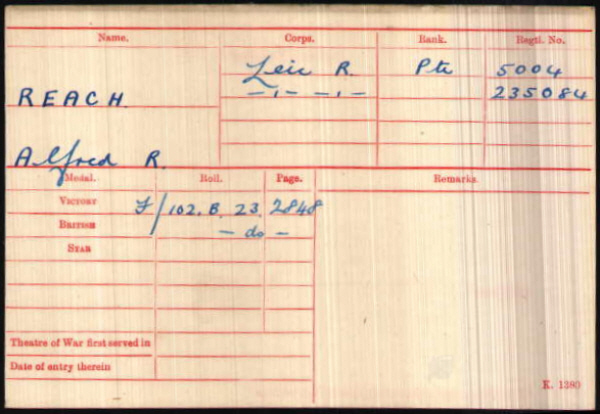 Name. Corps. Rank. Regtl. No.
Leic R. Pte 5004
REACH. — " — — " — 235084
Alfred R.
Medal. Roll. Page. Remarks.
VICTORY F/102.B.23. 2848
BRITISH — do —
STAR
Theatre of War first served in
Date of entry therein
K. 1380